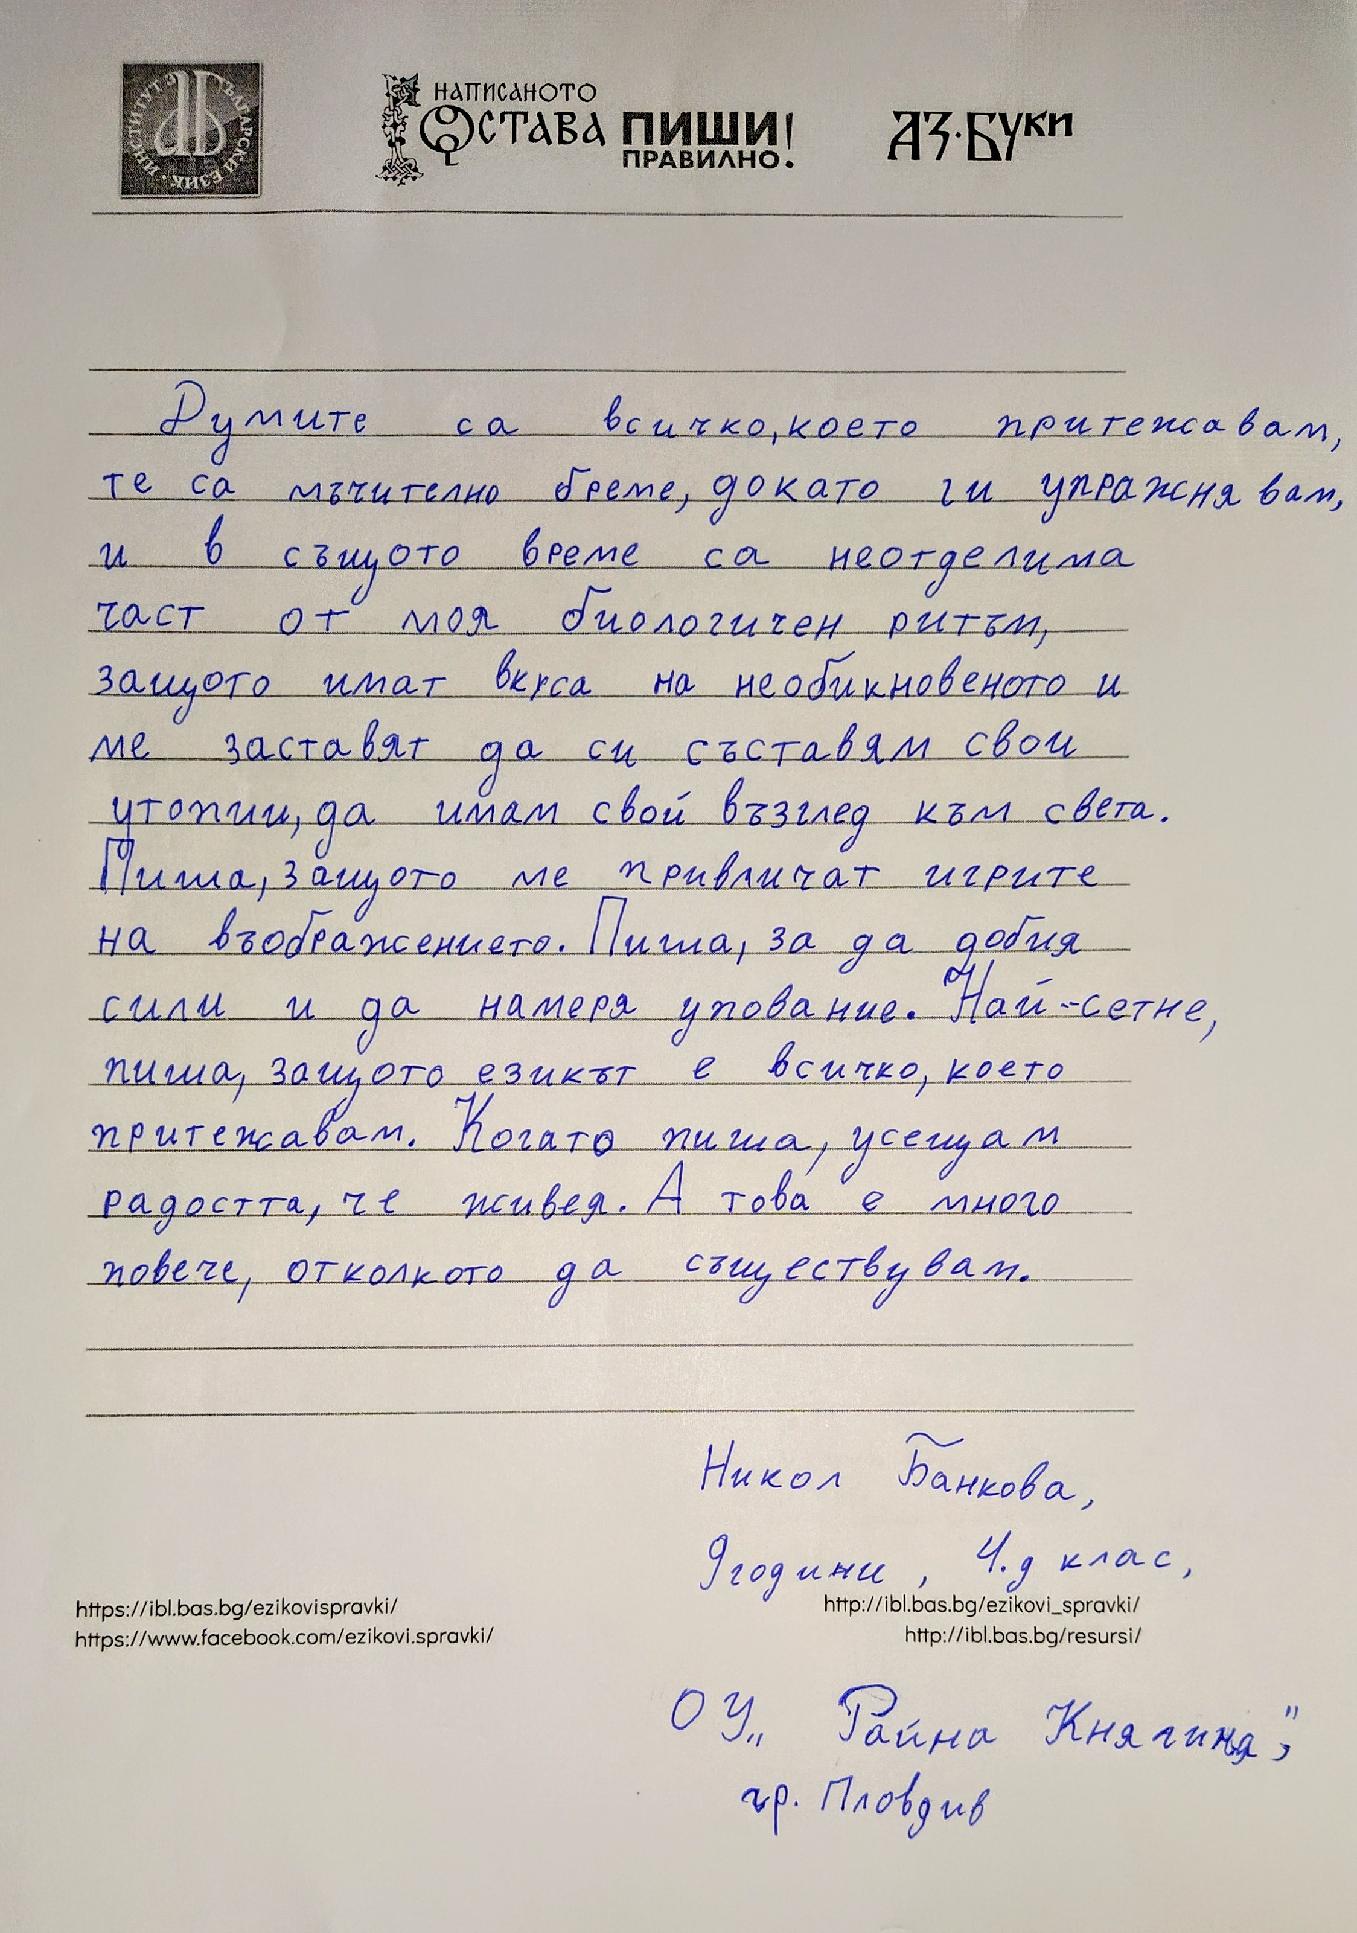 ИНСТИТУТ ЗА БЪЛГАРСКИ ЕЗИК
НАПИСАНОТО
ОСТАВА ПИШИ
ПРАВИЛНО!
АЗ·БУКИ
Думите са всичко, което притежавам,
те са мъчително бреме, докато ги упражнявам,
и в същото време са неотделима
част от моя биологичен ритъм,
защото имат вкуса на необикновеното и
ме заставят да си съставям свои
утопии, да имам свой възглед към света.
Пиша, защото ме привличат игрите
на въображението. Пиша, за да добия
сили и да намеря упование. Най-сетне,
пиша, защото езикът е всичко, което
притежавам. Когато пиша, усещам
радостта, че живея. А това е много
повече, отколкото да съществувам.
Никол Банкова,
9 години, 4. д клас,
https://ibl.bas.bg/ezikovispravki/
http://ibl.bas.bg/ezikovi_spravki/
https://www.facebook.com/ezikovi.spravki/
http://ibl.bas.bg/resursi/
ОУ „Райна Княгиня",
гр. Пловдив